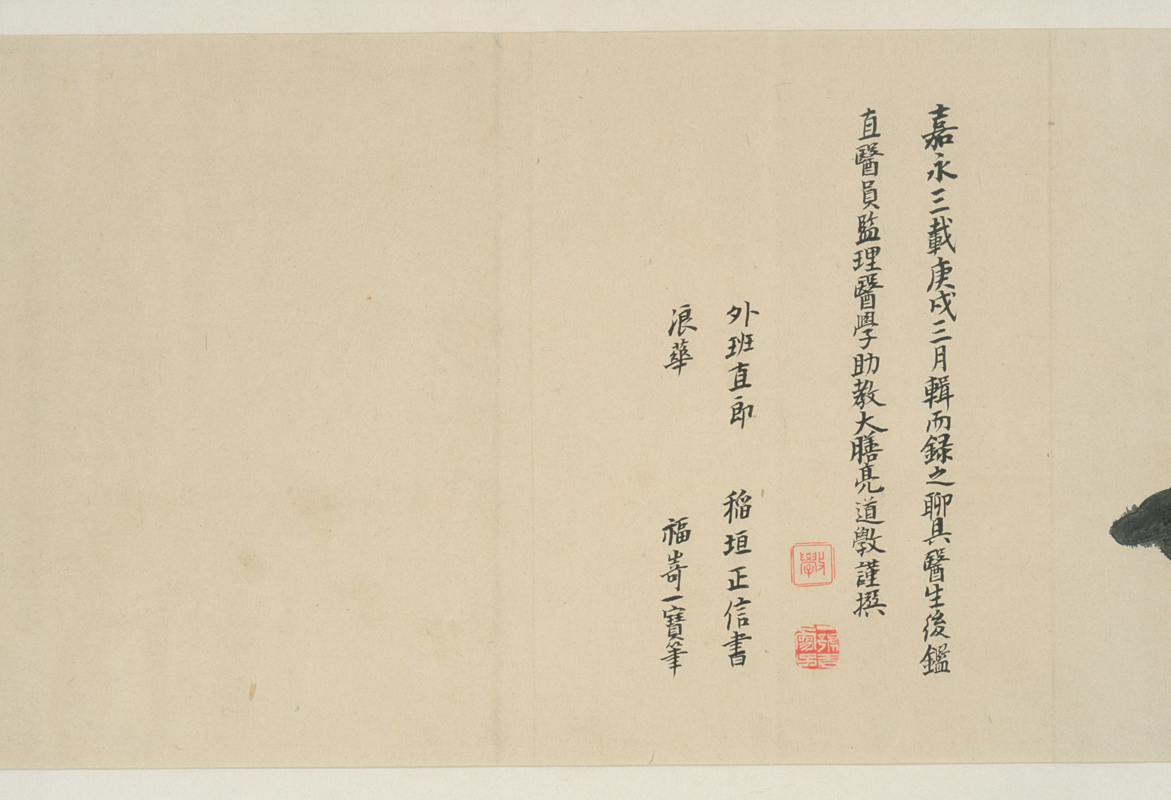 嘉永三載庚戌三月輯而録之聊具醫生後鑑
直醫員監理醫學助教大膳亮道斅謹撰
外班直郎　稲垣正信書
浪華　福嵜一寶筆